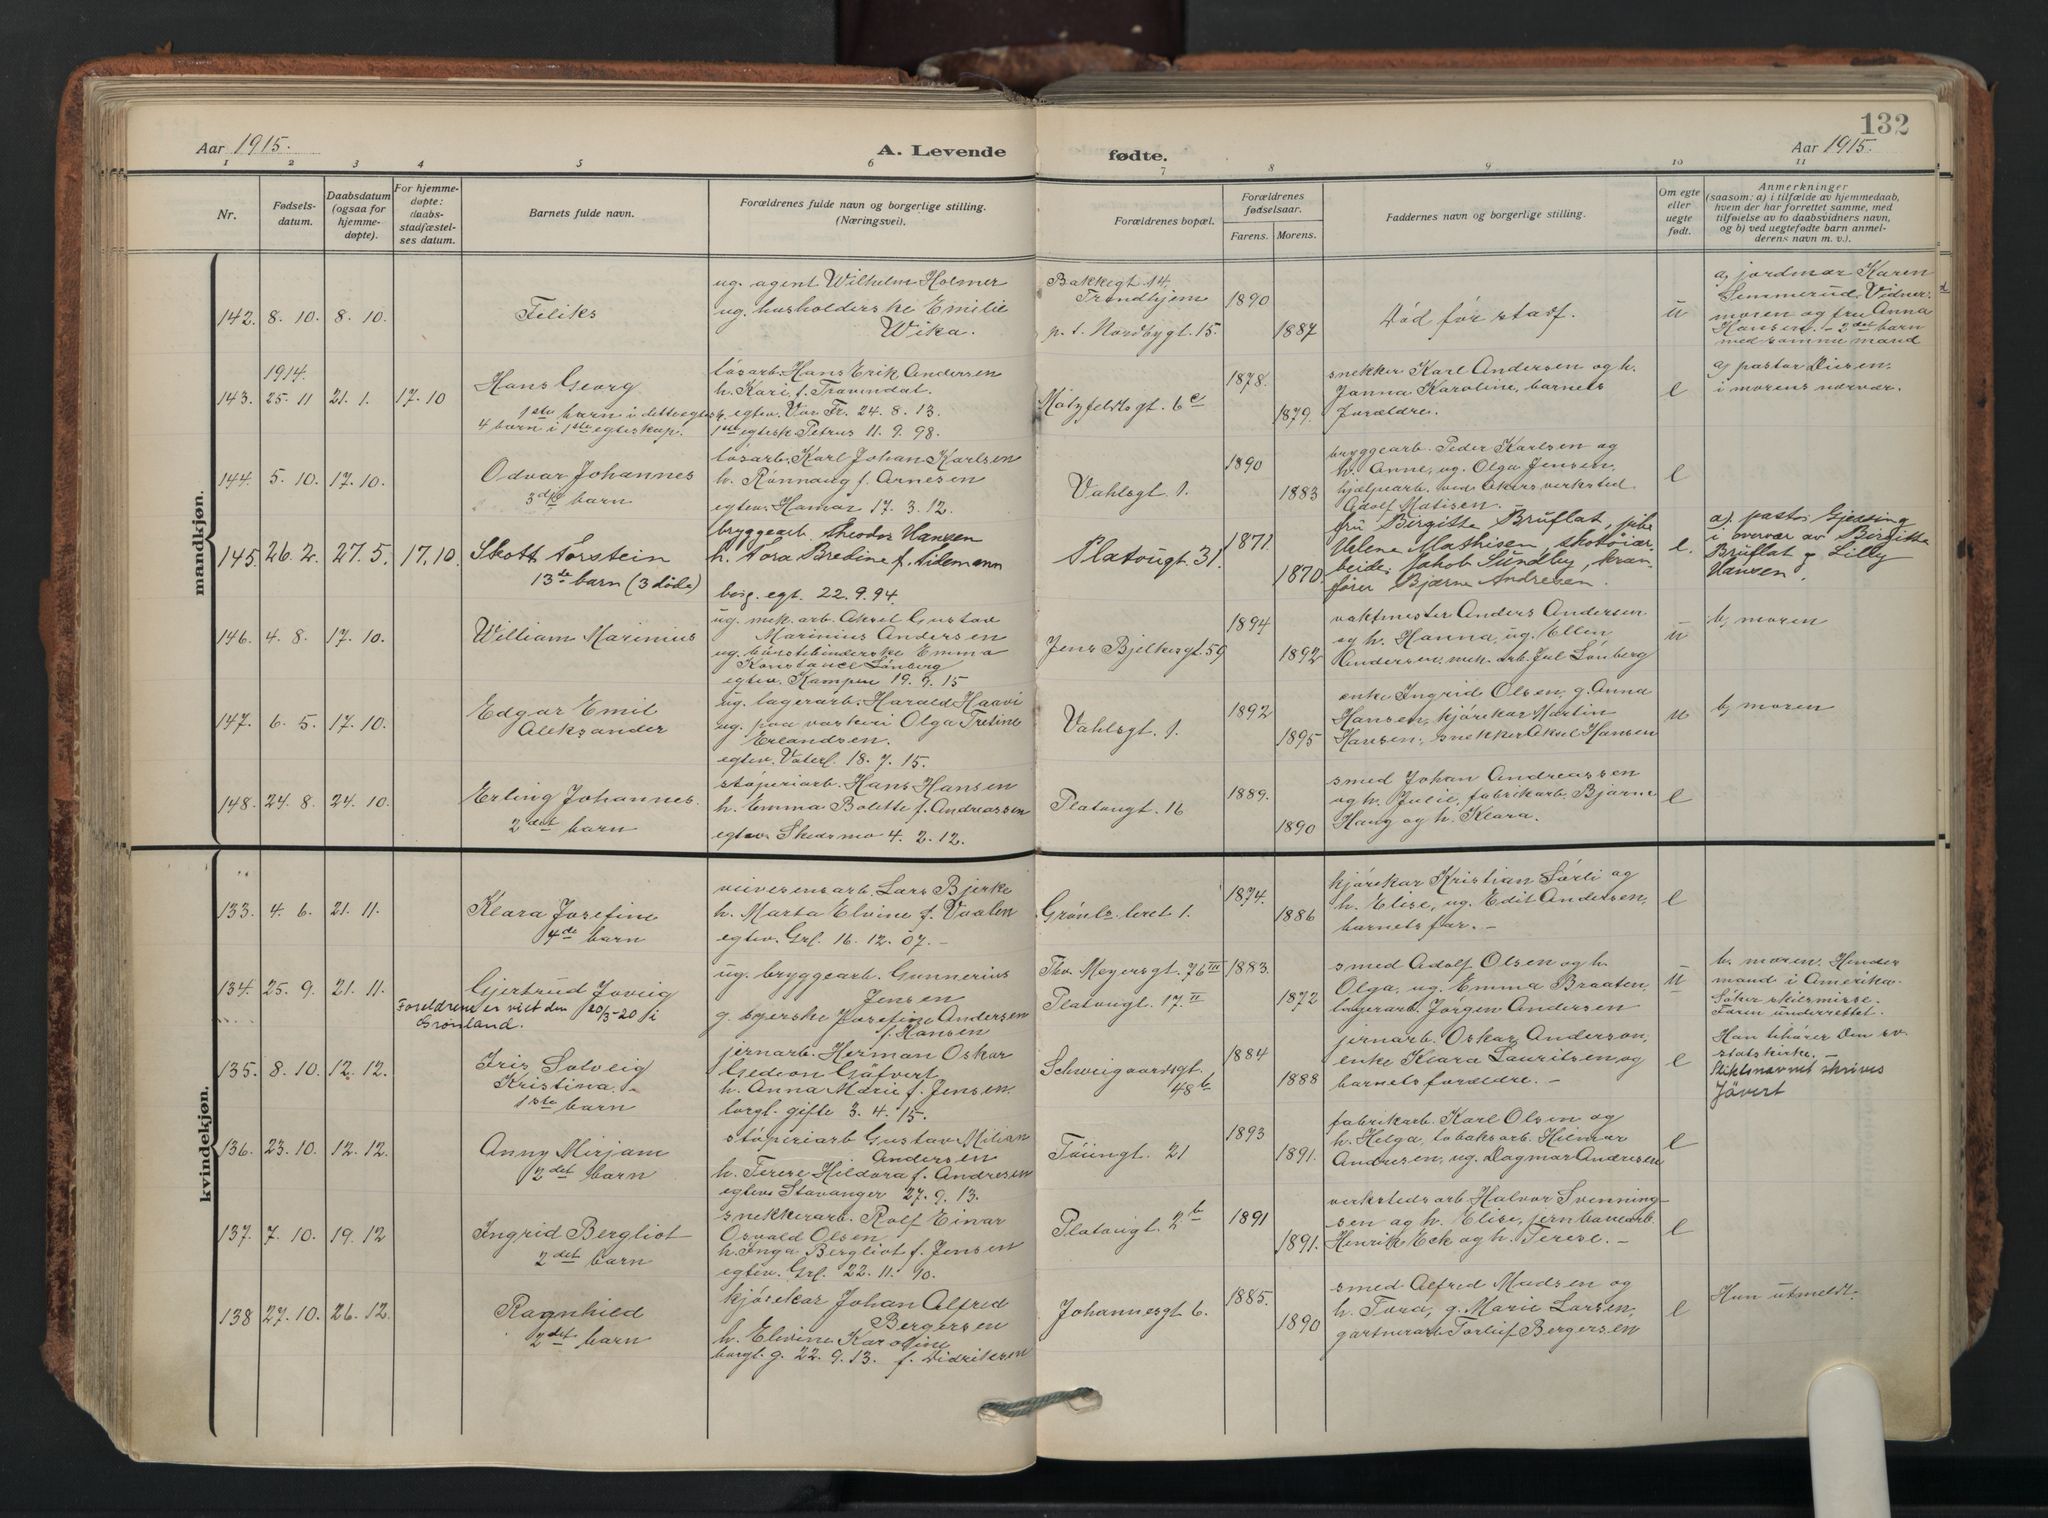 132
Aar 1915.
A. Levende
fødte.
Aar 1915.
1 2 3 4 5 6 7 8 9 10 11
Nr.
Fødsels-
datum.
Daabsdatum
(ogsaa for
hjemme-
døpte).
For hjemme-
døpte:
daabs-
stadfæstel-
ses datum.
Barnets fulde navn.
Forældrenes fulde navn og borgerlige stilling.
(Næringsvei).
Forældrenes bopæl.
Forældrenes
fødselsaar.
Farens. Morens.
Faddernes navn og borgerlige stilling.
Om egte
eller
uegte
født.
Anmerkninger
(saasom: a) i tilfælde av hjemmedaab,
hvem der har forrettet samme, med
tilføielse av to daabsvidners navn,
og b) ved uegtefødte barn anmel-
derens navn m. v.).
mandkjøn.
142. 8. 10. 8. 10.
Feliks
ug. agent Wilhelm Holmer
ug. husholderske Emilie
Wika.
Bakkegt 14
Trondhjem
p. t. Nordbygt. 15.
1890
1887
Død før staf.
u
a) jordmor Karen
Semmerud. Vidner:
moren og fru Anna
Hansen. – 2det barn
med samme mand
143. 1914. 25. 11 21. 1. 17. 10
Hans Georg
1ste barn i dette egtesk.
4 barn i 1ste egteskap.
løsarb. Hans Erik Andersen
h. Kari f. Travendal.
egtev. Vor Fr. 24. 8. 13.
1ste egtesk. Petrus 11. 9. 98.
Motzfeldtsgt. 6c
1878.
1879.
snekker Karl Andersen og h.
Janna Karoline, barnets
forældre.
e
a) pastor Diesen.
i morens nærvær.
144. 5. 10. 17. 10.
Odvar Johannes
3dje barn
løsarb. Karl Johan Karlsen
h. Rønnaug f. Arnesen
egtev. Hamar 17. 3. 12.
Vahlsgt. 1.
1890
1883
bryggearb. Peder Karlsen og
h. Anne, ug. Olga Jensen,
hjælpearb. ved Akers verksted
Adolf Matisen.
e
145. 26. 2. 27. 5. 17. 10.
Skott Torstein
13de barn (3 døde)
bryggearb. Theodor Hansen
h. Tora Bredine f. Tidemann
borg. egt. 22. 9. 94.
Platougt. 31.
1871.
1870.
fru Birgitte Bruflat, pike
Helene Mathisen, skotøiar-
beider Jakob Sundby, kran-
fører Bjarne Andresen.
e.
a). pastor Gjessing
i overvær av Birgitte
Bruflat og Lilly
Hansen.
146. 4. 8. 17. 10.
William Marinius
ug. mek. arb. Aksel Gustav
Marinius Andersen
ug. børstebinderske Emma
Konstance Lønberg
egtev. Kampen 19. 9. 15
Jens Bjelkesgt. 59
1894
1892
vaktmester Anders Andersen
og h. Hanna, ug. Ellen
Andersen, mek. arb. Jul Lønberg
u
b) moren
147. 6. 5. 17. 10.
Edgar Emil
Aleksander
ug. lagerarb. Harald Haavi
ug. paa vaskeri Olga Tretine
Erlandsen.
egtev. Vaterl. 18. 7. 15.
Vahlsgt. 1.
1892
1895
enke Ingrid Olsen, g. Anna
Hansen, kjørekar Martin
Hansen, snekker Aksel Hansen
u
b) moren
148. 24. 8. 24. 10.
Erling Johannes.
2det barn
støperiarb. Hans Hansen
h. Emma Bolette f. Andreassen
egtev. Skedsmo 4. 2. 12.
Platougt. 16
1889.
1890
smed Johan Andreassen
og h. Julie, fabrikarb. Bjarne
Haug og h. Klara.
e
kvindekjøn.
133. 4. 6. 21. 11.
Klara Josefine
4de barn
veivesensarb. Lars Bjerke
h. Marta Elvine f. Vaalen
egtev. Grl. 16. 12. 07. –
Grønlsleret 1.
1874.
1886
kjørekar Kristian Sørli og
h. Elise, ug. Edit Andersen,
barnets far. –
e
134. 25. 9. 21. 11.
Gjertrud Joveig
Foreldrene er viet den 20/3-20 i
Grønland.
ug. bryggearb. Gunnerius
Jensen
g. syerske Josefine Andersen
f. Hansen
Thv. Meyersgt. 76 III
Platougt. 17 II
1883.
1872
smed Adolf Olsen og h.
Olga, ug. Emma Braaten,
lagerarb. Jørgen Andersen
u
b. moren. Hendes
mand i Amerika.
Søker skilsmisse.
Faren underrettet.
135. 8. 10. 12. 12.
Iris Solveig
Kristina.
1ste barn
jernarb. Herman Oskar
Gedeon Gäfvert
h. Anna Marie f. Jensen.
borgl. gifte 3. 4. 15.
Schweigaardsgt.
48b
1884
1888
jernarb. Oskar Anderson,
enke Klara Lauritsen og
barnets forældre. –
e
Han tilhører den sv.
statskirke. –
Slektsnavnet skrives
Jävert
136. 23. 10. 12. 12.
Anny Mirjam
2det barn
støperiarb Gustav Milian
Andersen
h. Terese Hildora f. Andresen
egtev. Stavanger 27. 9. 13.
Tøiengt. 21
1893
1891.
fabrikarb. Karl Olsen og
h. Helga, tobaksarb. Hilmar
Andresen, ug. Dagmar Andresen
e
137. 7. 10. 19. 12
Ingrid Bergliot
2det barn
snekkerarb. Rolf Einar
Osvald Olsen
h. Inga Bergliot f. Jensen
egtev. Grl. 22. 11. 90.
Platougt. 2b
1891
1891.
verkstedsarb Halvor Svenning-
sen og h. Elise, jernbanearb.
Henrik Eck og h. Terese. –
e
138 27. 10. 26. 12.
Ragnhild
2det barn
kjørekar Johan Alfred
Bergersen
h. Elvine Karoline
borgl. g. 22. 9. 13. f. Didriksen
Johannesgt 6.
1885.
1890
smed Alfred Madsen og
h. Tora, g. Marie Larsen,
gartnerarb Torleif Bergersen
e
Hun utmeldt.